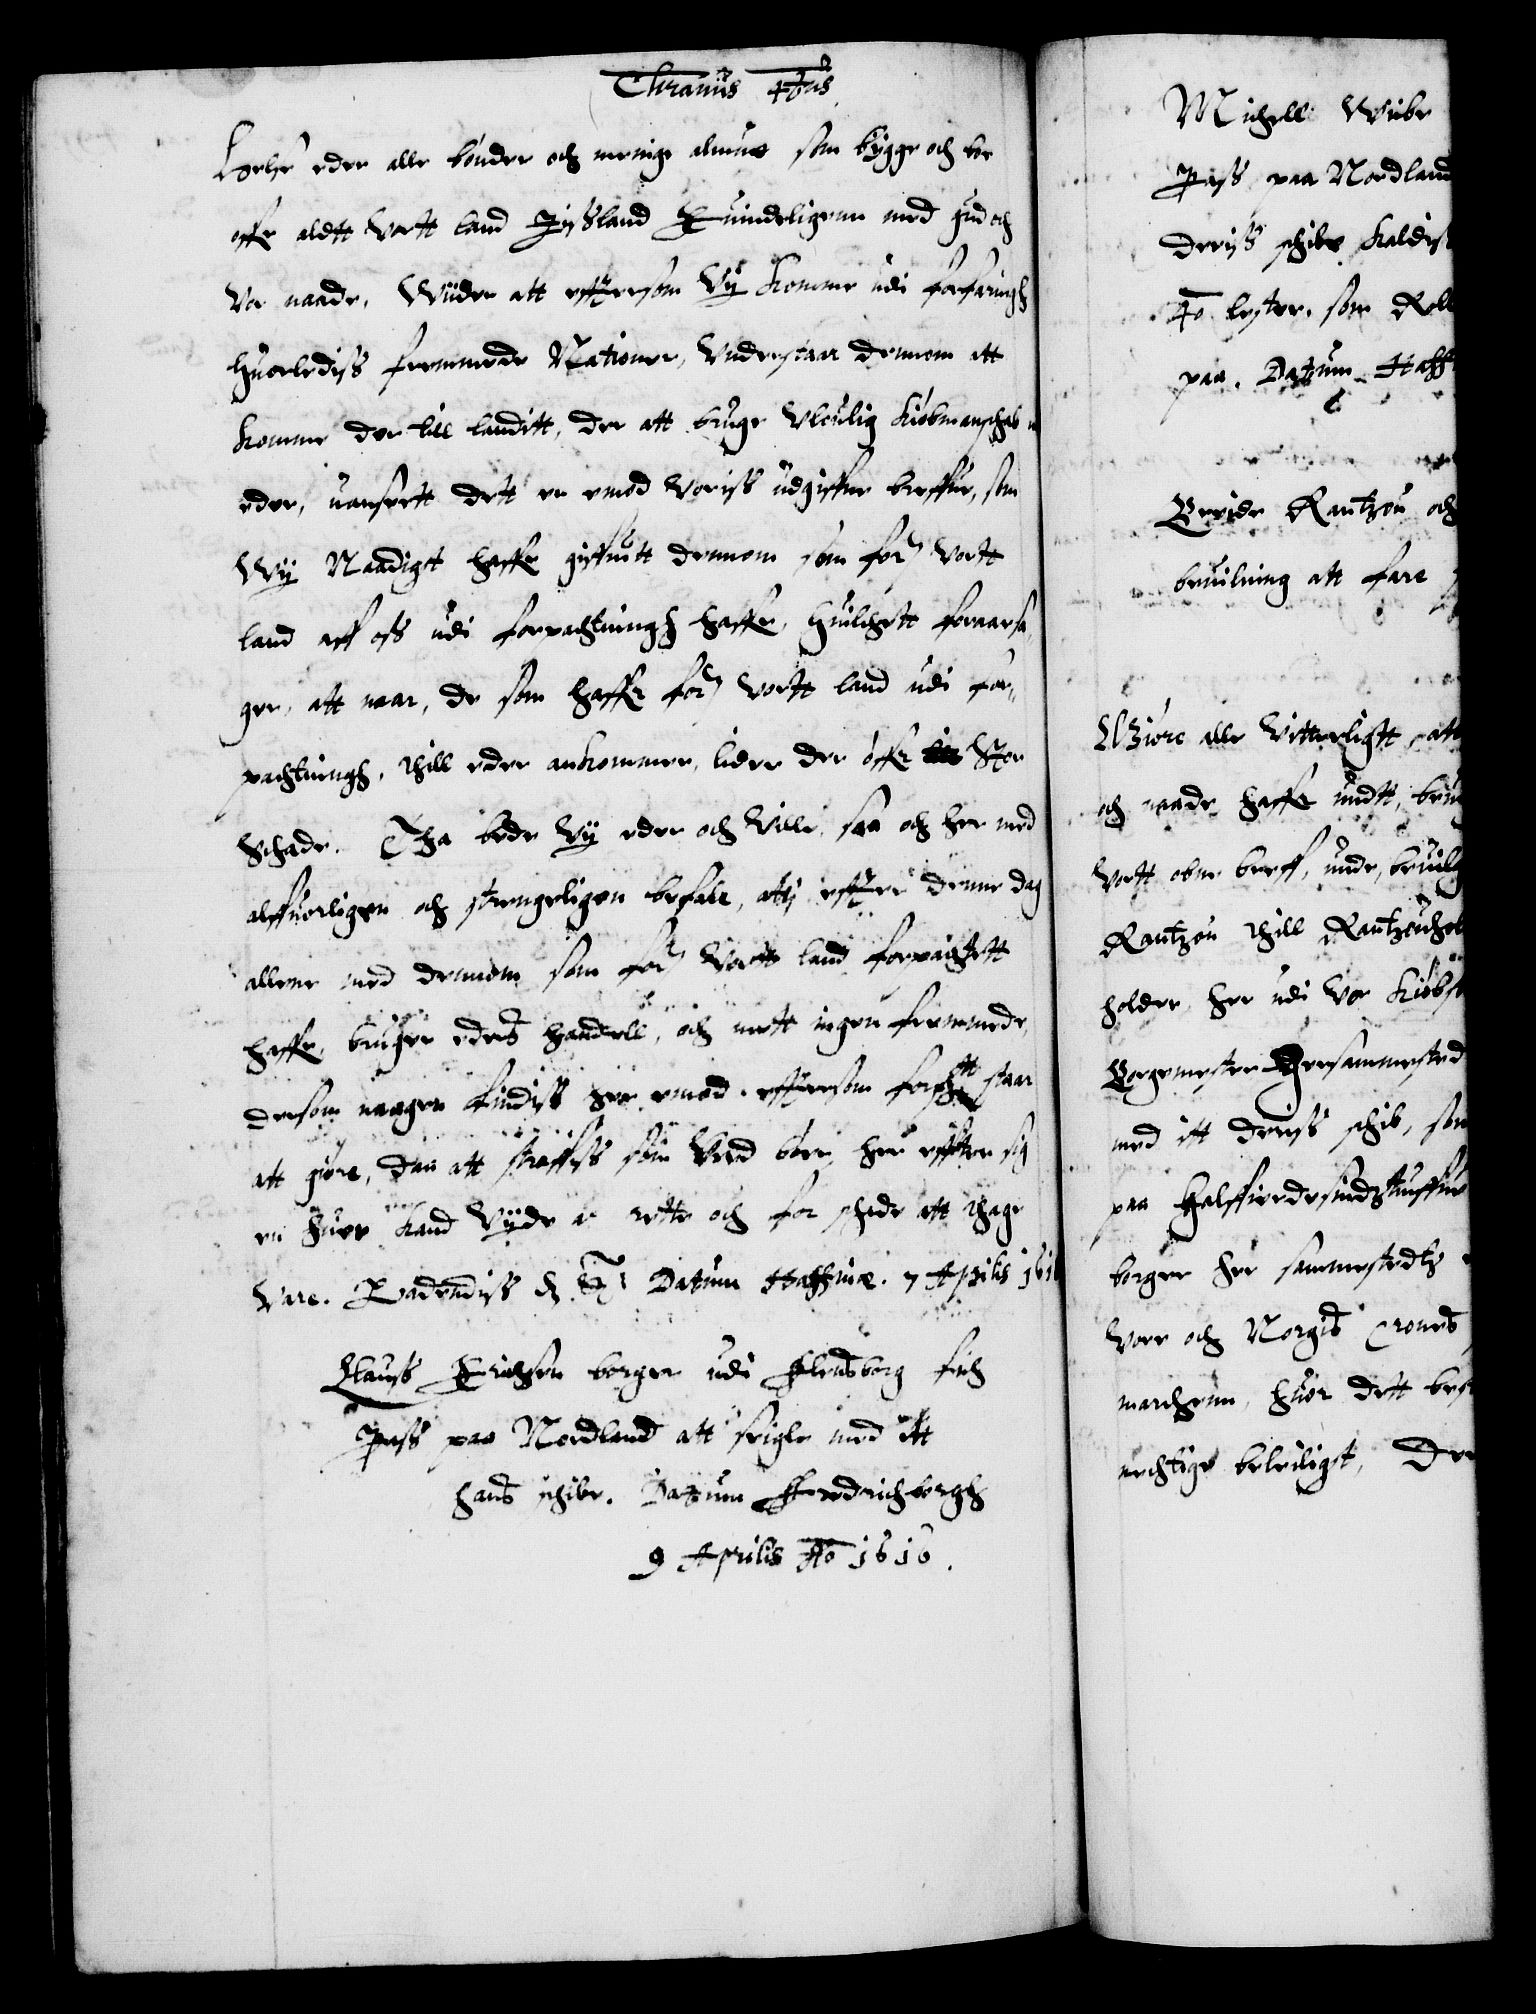 Chranüs 4tus
Helse eder alle bönder och menige almue som bÿgge och boe
offr aldtt Vortt land Jißland Kiundeligenn med gud och
Vor naade. Wiider att effttersom Vÿ komme udi forfaringh
huorlediss fremmede Nationer, Vnderstaar dennom att
komme der till landitt, der att bruge Vloulig kiöbmanschab
eder, uanseett dett er emod Voriss udgiffne breffue, som
Wÿ Naadigst haffe giffuitt dennom som for.ne Vortt
land aff oss udi forpachtningh haffe, huilchett foraarsa,
ger, att naar, de som haffe for.ne Vortt land udi for,
pachtningh, thill eder ankommer, lider der offr Stor
Schade. Tha bede Vÿ eder och Ville, saa och her med
alffuorligen och strengeligen befale, attj effter denne dag
allene med dennom som for.ne Vortt land forpachtett
haffe, bruger eders handell, och mett ingen fremmede
dersom naagen findiss her emod. efftersom forschr.tt staar
att giöre, Daa att straffis som Ved bör, her effter sig
en huer kand Vÿde at rette och for schade att thage
Vare. Datum Haffniæ. 7 Aprilis 1616
Clauss Erichsen borger udi Flensborg fich
Pass paa Nordland att seigle med itt
hans schibe. Datum Frederichborgh
9 Aprilis Ao 1616.
Michell Wibe
Pass paa Nordland
deriss schibe kaldis
40 lester. som
paa. Datum Haff
Breide Rantzou och
beuilning att fare
Giöre alle Vitterligtt, att
och naade haffe undtt, beui
Vortt obne breff, unde, beuilg
Rantzou thill Rantzouhol
holder, her udi Vor kiöbst
Borgemester hersammested
med itt deriss schib, som
paa halffierdesindztiuffue
borger her sammestedtz
Vore och Norgis Crones
marchenn, huor dett bes
mechtige beleiligst, Der